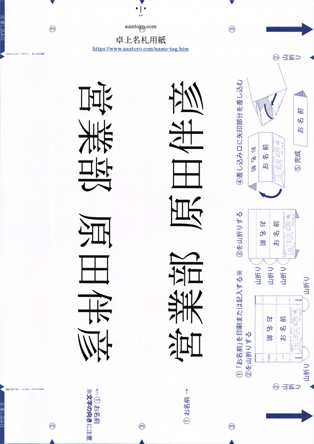 anatoyo.com
卓上名札用紙
https://www.anatoyo.com/name-tag.htm
営業部 原田伴彦
営業部 原田伴彦
①お名前→
←①お名前
※文字の向きに注意
②山折り
②山折り
①「お名前」を印刷または記入する※
②を山折りする
山折り
山折り
お名前
お名前
③を山折りする
山折り
山折り
お名前
お名前
④差し込み口に矢印部分を差し込む
お名前
お名前
⑤完成
お名前